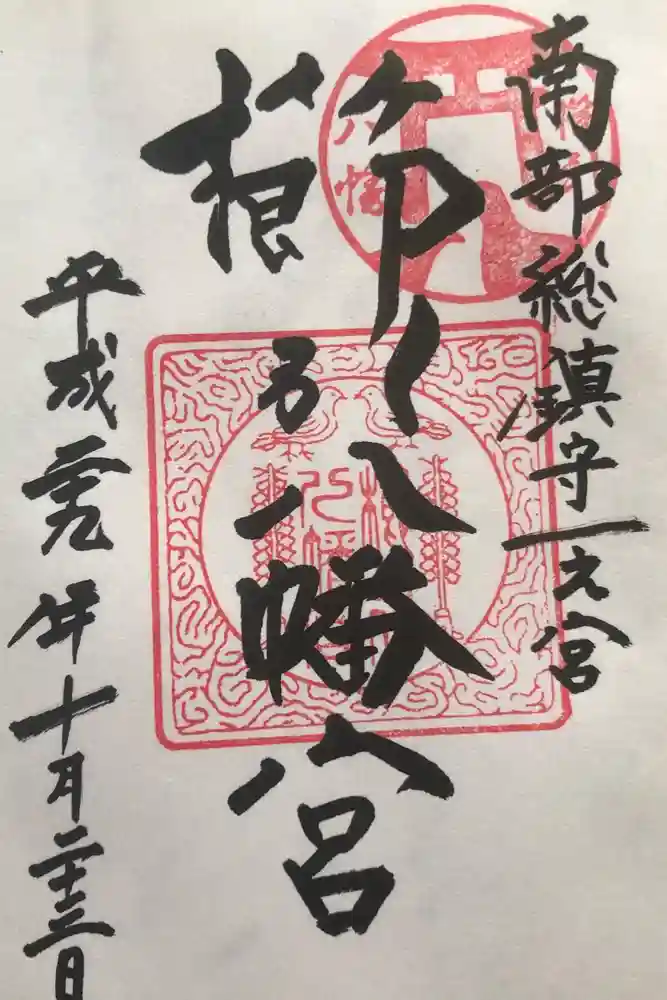 南部総鎮守一之宮
櫛引八幡宮
平成二十九年十月二十三日
八幡